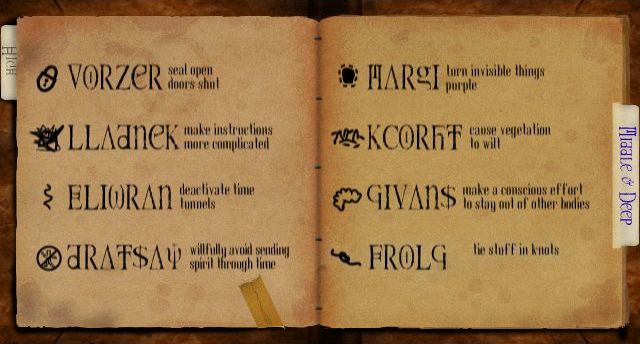 High
VORZER seal open
doors shut
LLADNEK make instructions
more complicated
ELIWRAN deactivate time
tunnels
DRATSAY willfully avoid sending
spirit through time
MARGI turn invisible things
purple
KCORHT cause vegetation
to wilt
GIVANS make a conscious effort
to stay out of other bodies
FROLG tie stuff in knots
Middle & Deep